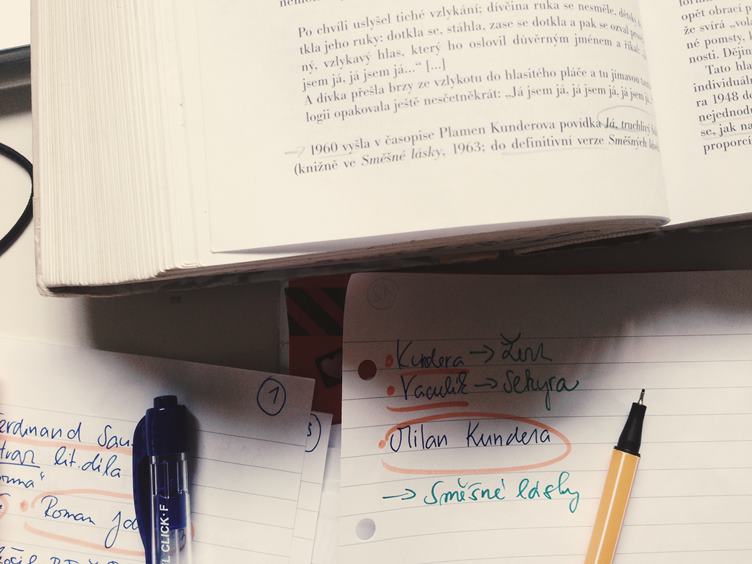 Po chvíli uslyšel tiché vzlykání; dívčina ruka se nesměle,
tkla jeho ruky: dotkla se, stáhla, zase se dotkla a pak se ozval
ný, vzlykavý hlas, který ho oslovil důvěrným jménem a říkal:
jsem já, já jsem já...“ [...]
A dívka přešla brzy ze vzlykotu do hlasitého pláče a tu
logii opakovala ještě nesčetněkrát: „Já jsem já, já jsem já, já jsem
1960 vyšla v časopise Plamen Kunderova povídka Já, truchlivý
(knižně ve Směšné lásky, 1963; do definitivní verze Směšných
opět obrací
že svírá „vola
né pomsty,
nosti. Dějin
Tato hla
individuáln
ra 1948 do
nejednodu
se, jak na
proporci
Kundera → Žert
Vaculík → Sekyra
Milan Kundera
→ Směšné lásky
1
erdinand Sau
lit. díla
Roman Ja
CLICK·F